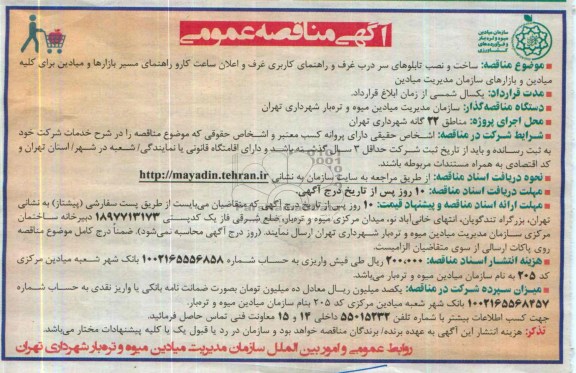 سازمان میادین
میوه و تره‌بار
و فرآورده‌های
کشاورزی
آگهی مناقصه عمومی
موضوع مناقصه: ساخت و نصب تابلوهای سر درب غرف و راهنمای کاربری غرف و اعلان ساعت کارو راهنمای مسیر بازارها و میادین برای کلیه
میادین و بازارهای سازمان مدیریت میادین
مدت قرارداد: یکسال شمسی از زمان ابلاغ قرارداد.
دستگاه مناقصه‌گذار: سازمان مدیریت میادین میوه و تره‌بار شهرداری تهران
محل اجرای پروژه: مناطق ۲۲ گانه شهرداری تهران
شرایط شرکت در مناقصه: اشخاص حقیقی دارای پروانه کسب معتبر و اشخاص حقوقی که موضوع مناقصه را در شرح خدمات شرکت خود
به ثبت رسانده و باید از تاریخ ثبت شرکت حداقل ۳ سال گذشته باشند و دارای اقامتگاه قانونی یا نمایندگی/ شعبه در شهر/ استان تهران و
کد اقتصادی به همراه مستندات مربوطه باشند.
نحوه دریافت اسناد مناقصه: از طریق مراجعه به سایت سازمان به نشانی http://mayadin.tehran.ir
مهلت دریافت اسناد مناقصه: ۱۰ روز پس از تاریخ درج آگهی.
مهلت ارائه اسناد مناقصه و پیشنهاد قیمت: ۱۰ روز پس از تاریخ درج آگهی که متقاضیان می‌بایست از طریق پست سفارشی (پیشتاز) به نشانی
تهران، بزرگراه تندگویان، انتهای خانی‌آباد نو، میدان مرکزی میوه و تره‌بار، ضلع شرقی فاز یک کدپستی ۱۸۹۷۷۱۳۱۷۳ دبیرخانه ساختمان
مرکزی سازمان مدیریت میادین میوه و تره‌بار شهرداری تهران ارسال نمایند. (روز درج آگهی محاسبه نمی‌شود). ضمناً درج کامل موضوع مناقصه
روی پاکات ارسالی از سوی متقاضیان الزامیست.
هزینه انتشار اسناد مناقصه: ۲۰۰.۰۰۰ ریال طی فیش واریزی به حساب شماره ۱۰۰۲۱۶۵۵۵۶۸۵۸ بانک شهر شعبه میادین مرکزی
کد ۲۰۵ به نام سازمان میادین میوه و تره‌بار می‌باشد.
میزان سپرده شرکت در مناقصه: یکصد میلیون ریال معادل ده میلیون تومان بصورت ضمانت نامه بانکی یا واریز نقدی به حساب شماره
۱۰۰۲۱۶۵۵۶۸۲۵۷ بانک شهر شعبه میادین مرکزی کد ۲۰۵ بنام سازمان میادین میوه و تره‌بار.
جهت کسب اطلاعات بیشتر با شماره تلفن ۵۵۰۱۵۲۳۲ داخلی ۱۴ و ۱۵ معاونت فنی تماس حاصل فرمائید.
تذکر: هزینه انتشار این آگهی به عهده برنده/ برندگان مناقصه خواهد بود و سازمان در رد یا قبول یک یا کلیه پیشنهادات مختار می‌باشد.
روابط عمومی و امور بین الملل سازمان مدیریت میادین میوه و تره‌بار شهرداری تهران